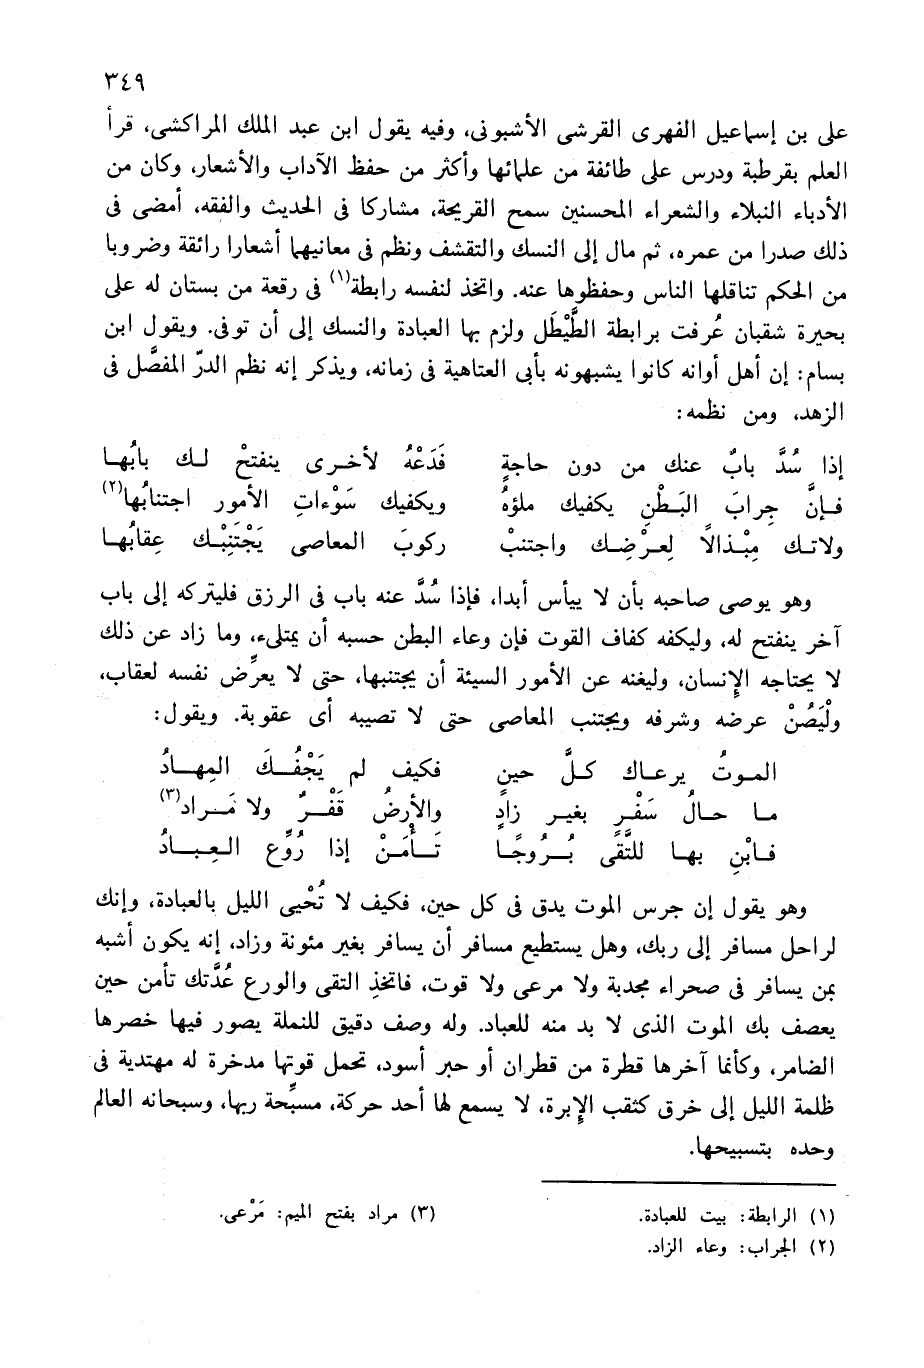 ٣٤٩
على بن إسماعيل الفهرى القرشى الأشبونى، وفيه يقول ابن عبد الملك المراكشى، قرأ
العلم بقرطبة ودرس على طائفة من علمائها وأكثر من حفظ الآداب والأشعار، وكان من
الأدباء النبلاء والشعراء المحسنين سمح القريحة، مشاركا فى الحديث والفقه، أمضى فى
ذلك صدرا من عمره، ثم مال إلى النسك والتقشف ونظم فى معانيهما أشعارا رائقة وضروبا
من الحكم تناقلها الناس وحفظوها عنه. واتخذ لنفسه رابطة(١) فى رقعة من بستان له على
بحيرة شقبان عُرفت برابطة الطَّيْطَل ولزم بها العبادة والنسك إلى أن توفى. ويقول ابن
بسام: إن أهل أوانه كانوا يشبهونه بأبى العتاهية فى زمانه، ويذكر إنه نظم الدرّ المفصَّل فى
الزهد، ومن نظمه:
إذا سُدَّ بابٌ عنك من دون حاجةٍ فَدَعْهُ لأخرى ينفتحْ لك بابُها
فإنَّ جِرابَ البَطْنِ يكفيك ملؤهُ ويكفيك سَوْءاتِ الأمور اجتنابُها(٢)
ولاتك مِبْذالًا لِعرْضِك واجتنبْ ركوبَ المعاصى يَجْتَنِبْك عِقابُها
وهو يوصى صاحبه بأن لا ييأس أبدا، فإذا سُدَّ عنه باب فى الرزق فليتركه إلى باب
آخر ينفتح له، وليكفه كفاف القوت فإن وعاء البطن حسبه أن يمتلىء، وما زاد عن ذلك
لا يحتاجه الإنسان، وليغنه عن الأمور السيئة أن يجتنبها، حتى لا يعرِّض نفسه لعقاب،
ولْيَصُنْ عرضه وشرفه ويجتنب المعاصى حتى لا تصيبه أى عقوبة. ويقول:
الموتُ يرعاك كلَّ حينٍ فكيف لم يَجْفُكَ المِهادُ
ما حالُ سَفْرٍ بغير زادٍ والأرضُ قَفْرٌ ولا مَراد(٣)
فابْنِ بها للتُّقَى بُروجًا تَأْمَنْ إذا رُوِّع العِبادُ
وهو يقول إن جرس الموت يدق فى كل حين، فكيف لا تُحْيى الليل بالعبادة، وإنك
لراحل مسافر إلى ربك، وهل يستطيع مسافر أن يسافر بغير مئونة وزاد، إنه يكون أشبه
بمن يسافر فى صحراء مجدبة ولا مرعى ولا قوت، فاتخذِ التقى والورع عُدَّتك تأمن حين
يعصف بك الموت الذى لا بد منه للعباد. وله وصف دقيق للنملة يصور فيها خصرها
الضامر، وكأنما آخرها قطرة من قطران أو حبر أسود، تحمل قوتها مدخرة له مهتدية فى
ظلمة الليل إلى خرق كثقب الإبرة، لا يسمع لها أحد حركة، مسبِّحة ربها، وسبحانه العالم
وحده بتسبيحها.
(١) الرابطة: بيت للعبادة.
(٢) الجراب: وعاء الزاد.
(٣) مراد بفتح الميم: مَرْعى.